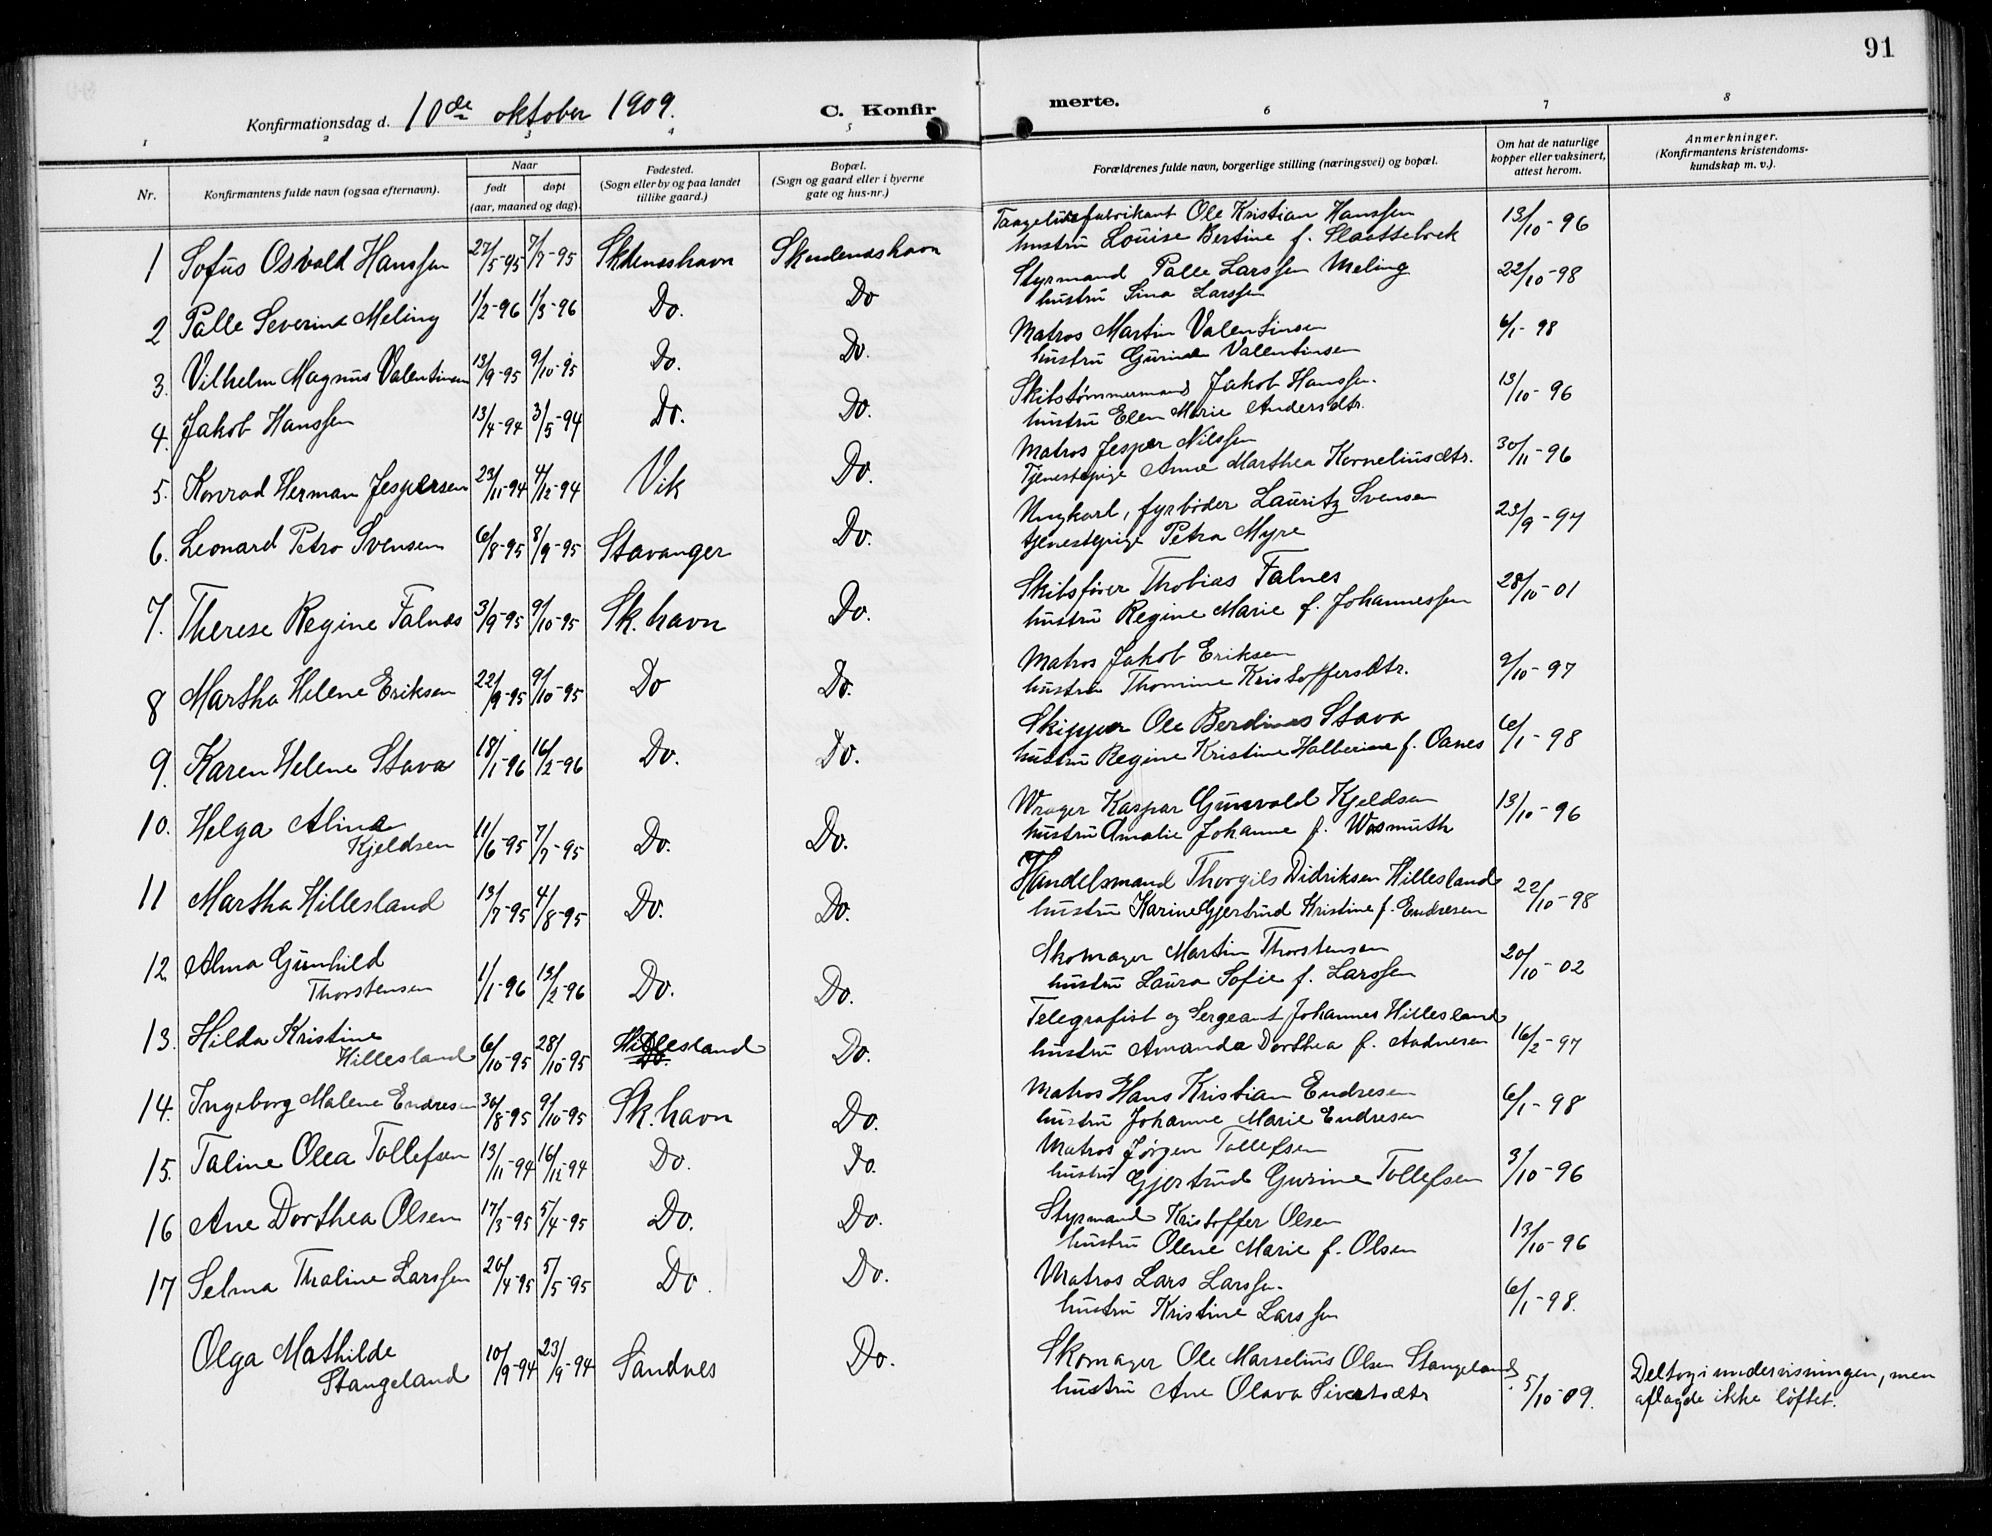 91
Konfirmationsdag d. 10de oktober 1909.
C. Konfirmerte.
1 2 3 4 5 6 7 8
Nr. Konfirmantens fulde navn (ogsaa efternavn). Naar født døpt (aar, maaned og dag). Fødested. (Sogn eller by og paa landet tillike gaard.) Bopæl. (Sogn og gaard eller i byerne gate og hus-nr.) Forældrenes fulde navn, borgerlige stilling (næringsvei) og bopæl. Om hat de naturlige kopper eller vaksinert, attest herom. Anmerkninger. (Konfirmantens kristendomskundskap m. v.).
1 Sofus Osvald Hanssen 27/5-95 7/7-95 Skdeneshavn Skudeneshavn fabrikant Ole Kristian Hanssen 13/10-96
hustru Louise Bertine f. Slaattebrek
2 Palle Severin Meling 1/2-96 1/3-96 Do. Do Styrmand Palle Larssen Meling 22/10-98
hustru Sina Larssen
3. Vilhelm Magnus Valentinsen 13/9-95 9/10-95 Do. Do. Matros Martin Valentinsen 6/1-98
hustru Gurine Valentinsen
4. Jakob Hanssen 13/4-94 3/5-94 Do. Do. Skibstømmermand Jakob Hanssen. 13/10-96
hustru Elen Marie Andersdtr.
5. Konrad Herman Jespersen 23/11-94 4/12-94 Vik Do. Matros Jesper Nilssen 30/11-96
Tjenestepige Anne Marthea Korneliusdtr.
6. Leonard Petro Svensen 6/8-95 8/9-95 Stavanger Do. Ungkarl, fyrbøder Lauritz Svensen 23/9-97
tjenestepige Petra Myre
7. Therese Regine Falnes 3/9-95 9/10-95 Sk. havn Do. Skibsfører Thobias Falnes 28/10-01
hustru Regine Marie f. Johannessen
8 Martha Helene Eriksen 22/9-95 9/10-95 Do Do. Matros Jakob Eriksen 9/10-97
hustru Thomine Kristoffersdtr.
9. Karen Helene Stava 18/1-96 16/2-96 Do. Do. Skipper Ole Berdines Stava 6/1-98
hustru Regine Kristine Halberine f. Oanes
10. Helga Alina Kjeldsen 11/6-95 7/7-95 Do. Do. Vrager Kaspar Gunvald Kjeldsen 13/10-96
hustru Amalie Johanne f. Wasmuth
11 Martha Hillesland 13/7-95 4/8-95 Do. Do. Handelsmand Thorgils Didriksen Hillesland 22/10-98
hustru Karine Gjertrud Kristine f. Endresen
12 Alma Gunhild Thorstensen 1/1-96 13/2-96 Do. Do. Skomager Martin Thorstensen 20/10-02
hustru Laura Sofie f. Larssen
13. Hilda Kristine Hillesland 6/10-95 28/10-95 Hillesland Do. Telegrafist og Sergeant Johannes Hillesland 16/2-97
hustru Amanda Dorthea f. Aadnesen
14. Ingeborg Malene Endresen 30/8-95 9/10-95 Sk. havn Do. Matros Hans Kristian Endresen 6/1-98
hustru Johanne Marie Endresen
15. Taline Olea Tollefsen 13/11-94 16/12-94 Do. Do. Matros Jørgen Tollefsen 3/10-96
hustru Gjertrud Gurine Tollefsen
16 Ane Dorthea Olsen 17/3-95 5/4-95 Do. Do. Styrmand Kristoffer Olsen 13/10-96
hustru Olene Marie f. Olsen
17 Selma Thaline Larssen 20/4-95 5/5-95 Do. Do. Matros Lars Larssen. 6/1-98.
hustru Kristine Larssen
Olga Mathilde Stangeland 10/9-94 23/9-94 Sandnes Do. Skomager Ole Marselius Olsen Stangeland 5/10-09. Deltog i undervisningen, men
hustru Ane Olava Sivertsdtr aflagde ikke løftet.